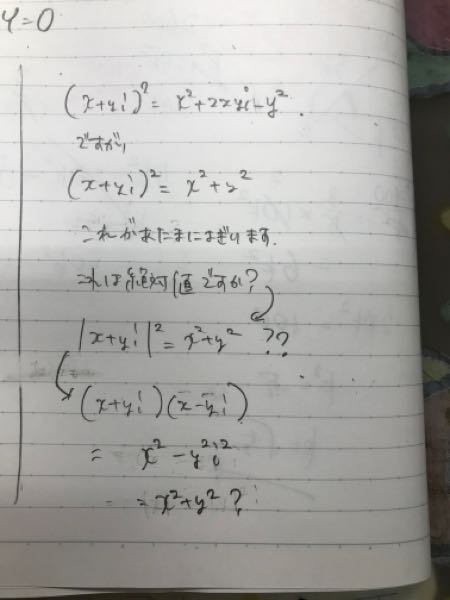 y=0
(x+yi)²=x²+2xyi-y².
ですが,
(x+yi)²=x²+y²
これがあたまによぎります.
これは絶対値ですか?
|x+yi|²=x²+y² ??
(x+yi)(x-yi)
=x²-y²i²
=x²+y²?